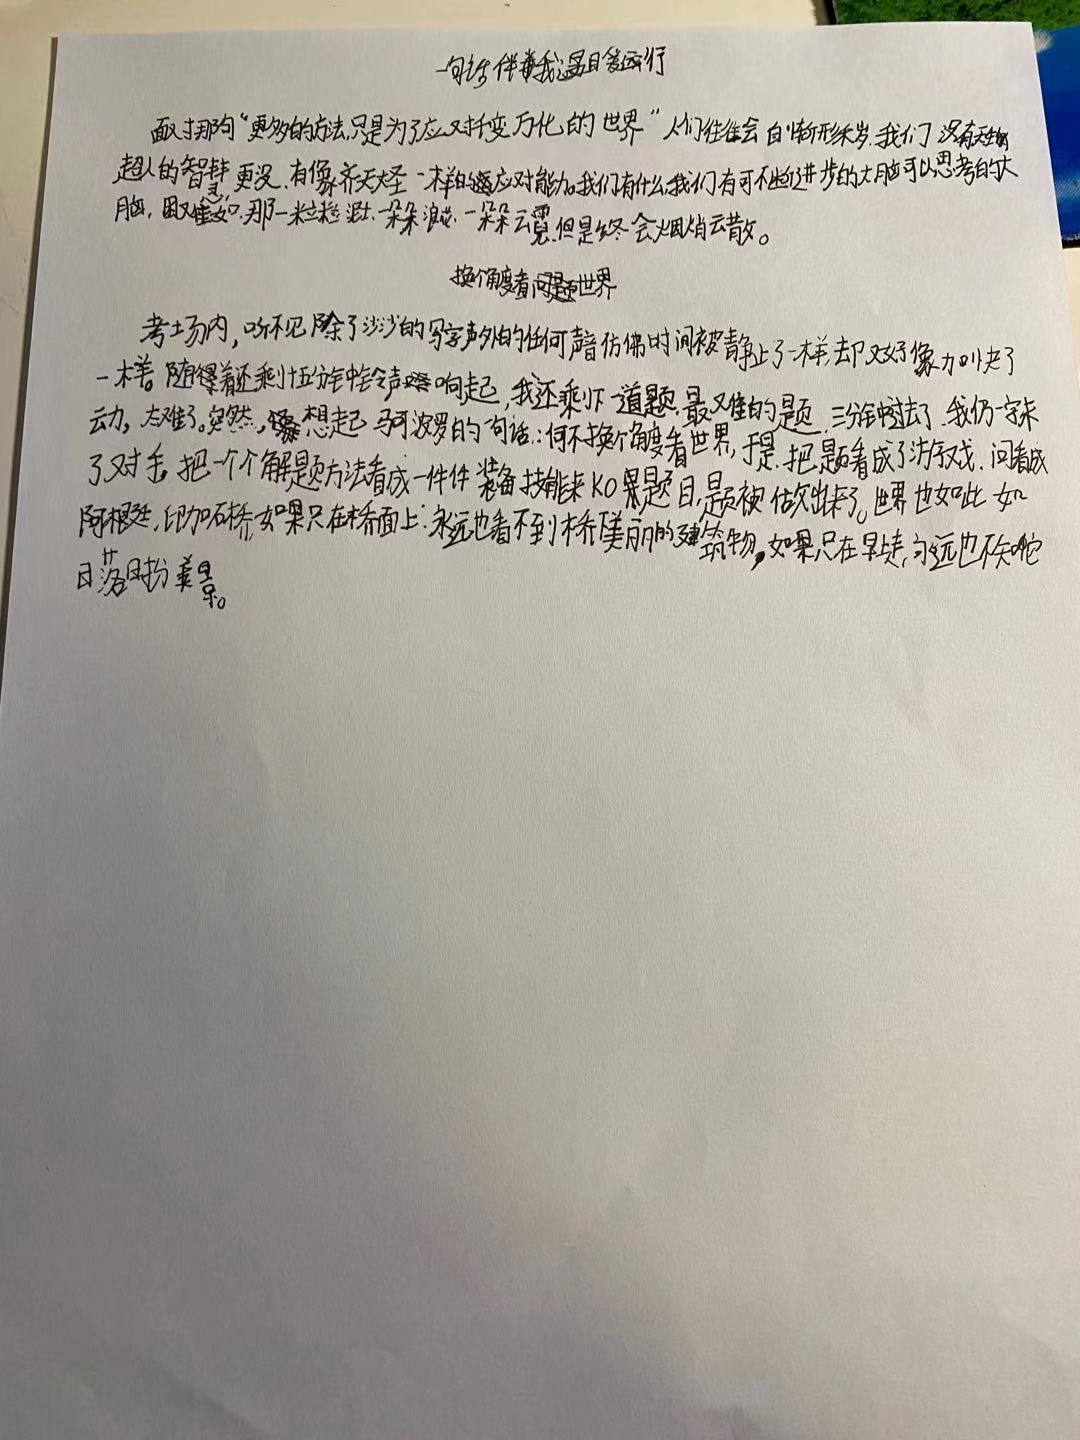 一句话伴着我
面对那句“更多的方法,只是为了应对千变万化的世界”人们往往会自惭形秽,我们没有天生
超人的智慧 更没有像齐天大圣一样的应对能力,我们有什么,我们有可不断进步的大脑可以思考的大
脑,困难如那一粒粒泥土,一朵朵浪花,一朵朵云霓,但是终会烟消云散。
换个角度看问题世界
考场内,听不见除了沙沙的写字声外的任何声音仿佛时间被静止了一样却又好像加快了
一样。随着还剩十五分钟铃声响起,我还剩下一道题,最又难的题,三分钟过去了,我仍一字未
动,太难了。突然,想起马可波罗的一句话:何不换个角度看世界,于是,把题看成了游戏,问看成
了对手,把一个个解题方法看成一件件装备技能来KO果题目,题被做出来了。世界也如此如
阿根廷,伊加石桥,如果只在桥面上,永远也看不到桥美丽的建筑物,如果只在早,永远也不会
日落时分美景。